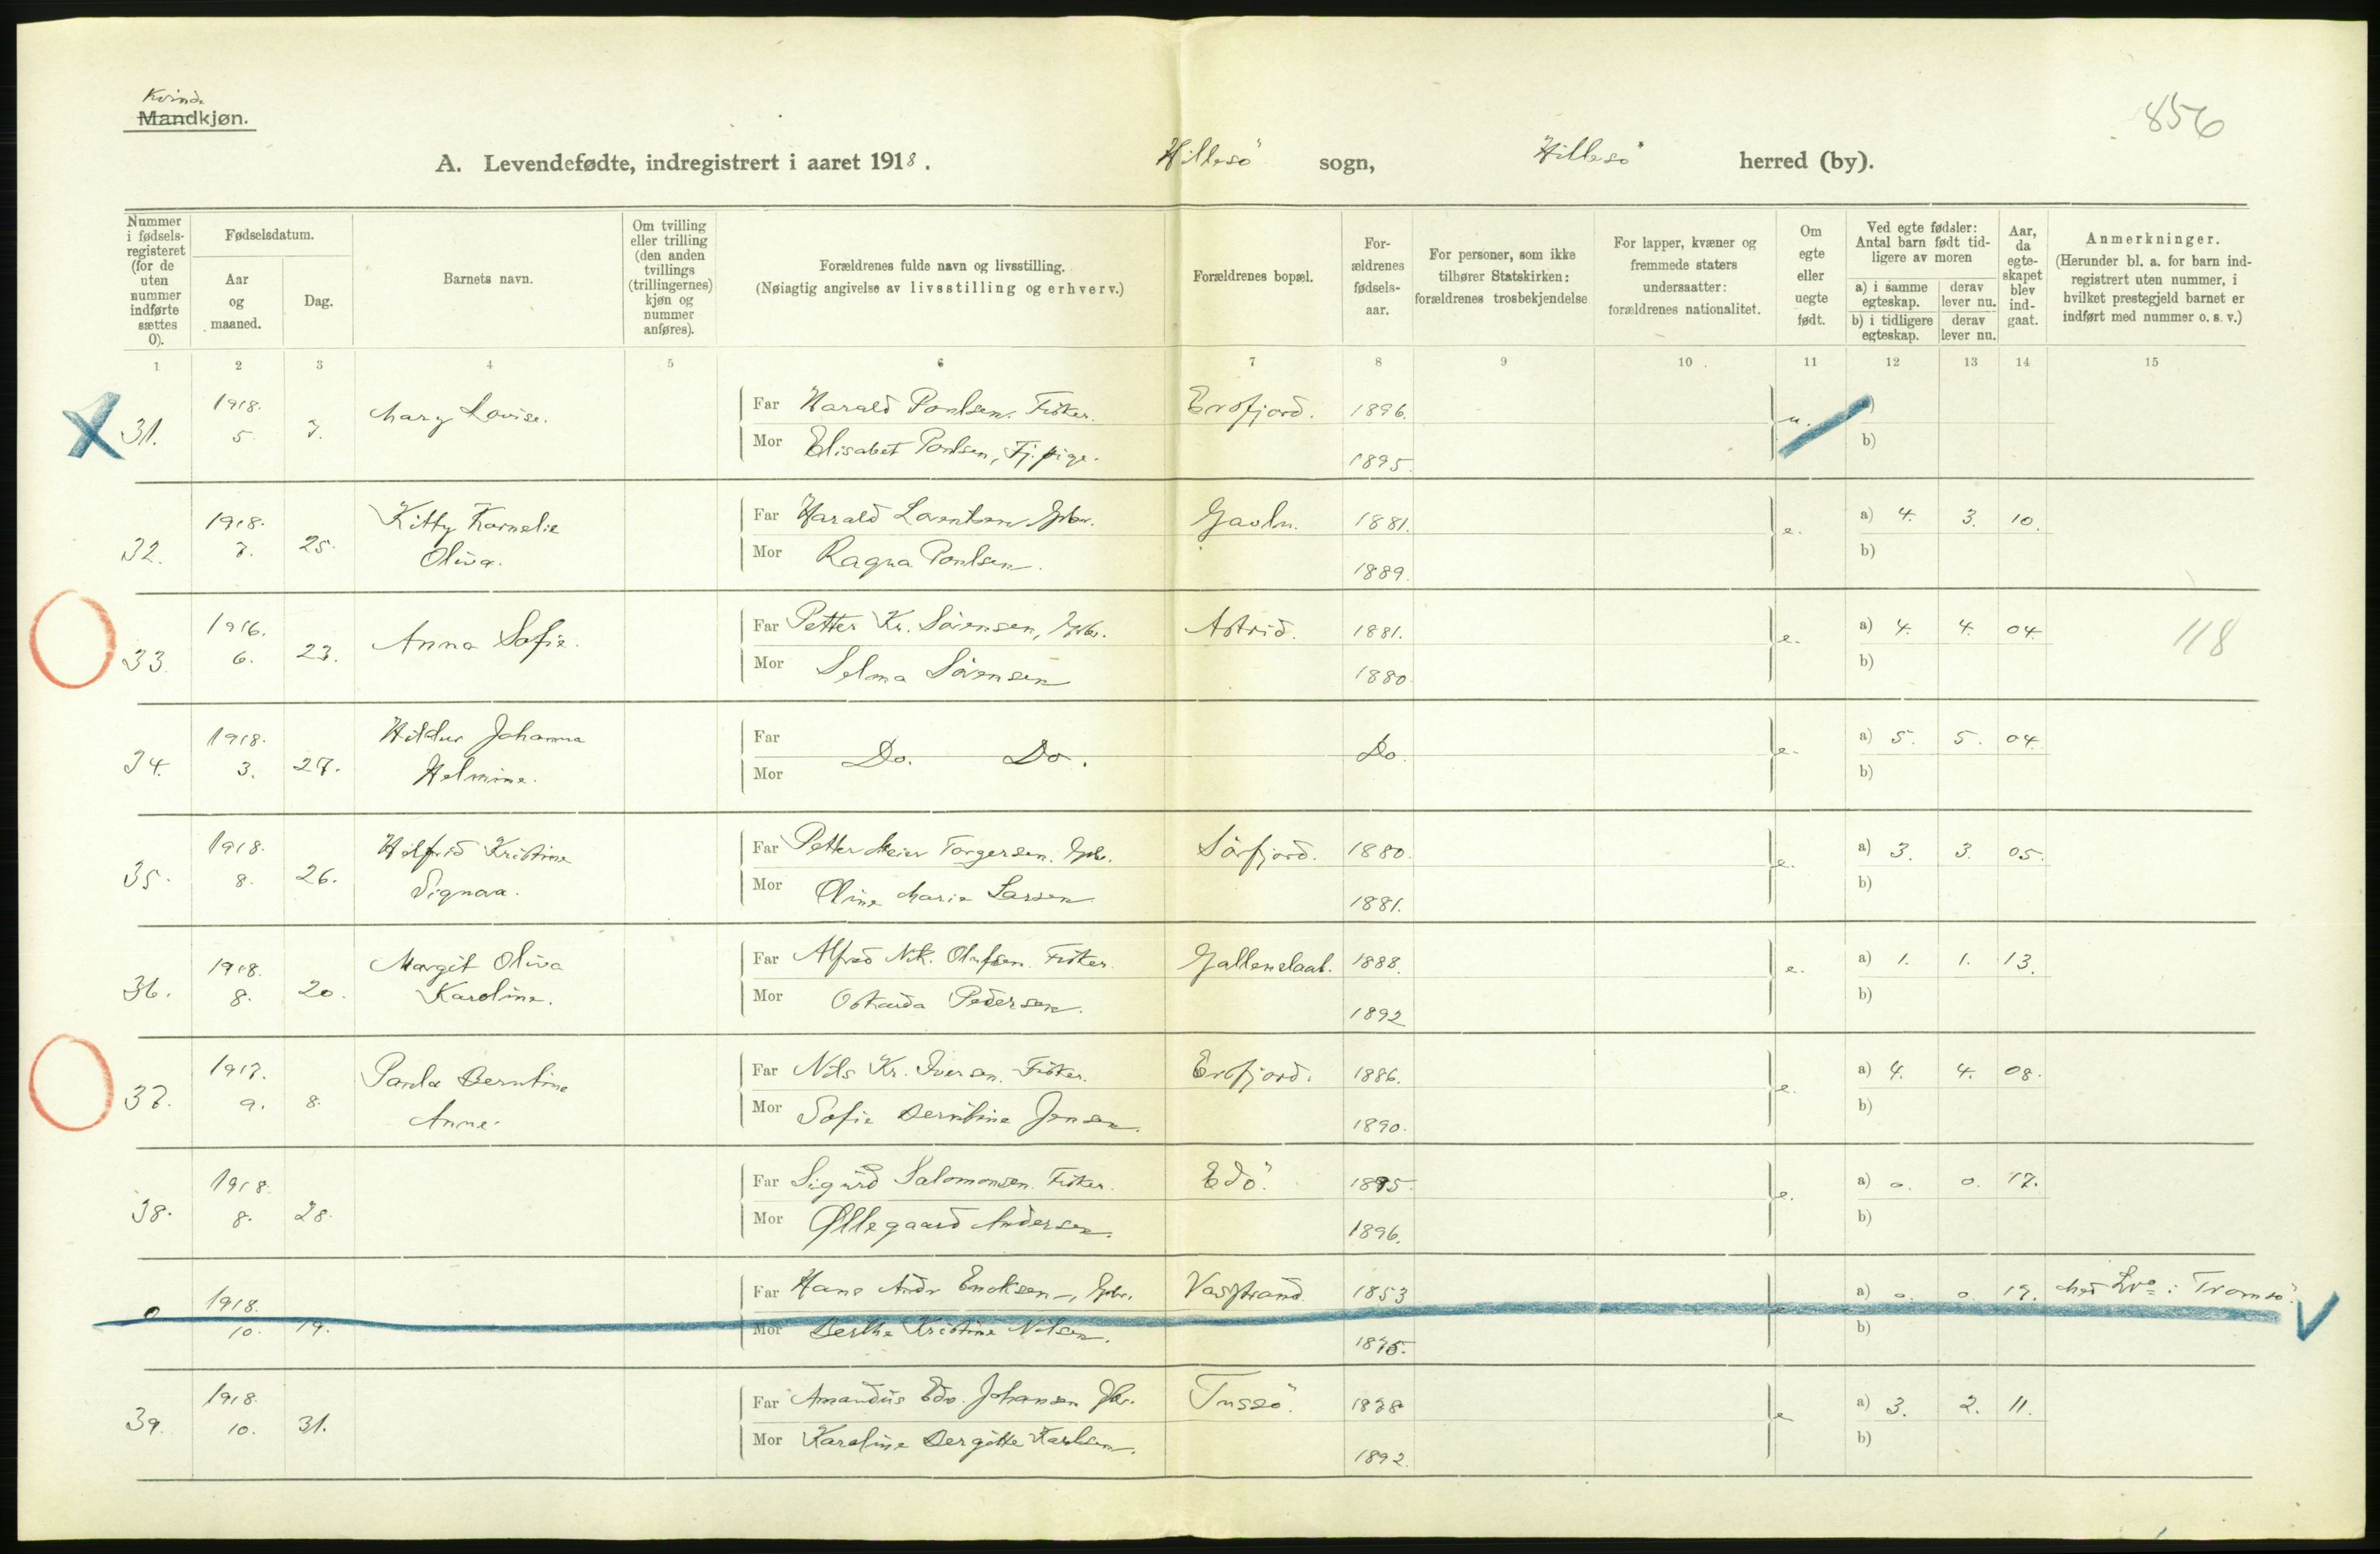 Kvinde
Mandkjøn.
856
A. Levendefødte, indregistrert i aaret 1918. Hillesö sogn, Hillesö herred (by).
Nummer i fødselsregisteret (for de uten nummer indførte sættes 0).
Fødselsdatum.
Aar og maaned.
Dag.
Barnets navn.
Om tvilling eller trilling (den anden tvillings (trillingernes) kjøn og nummer anføres).
Forældrenes fulde navn og livsstilling.
(Nøiagtig angivelse av livsstilling og erhverv.)
Forældrenes bopæl.
Forældrenes fødselsaar.
For personer, som ikke tilhører Statskirken: forældrenes trosbekjendelse
For lapper, kvæner og fremmede staters undersaatter: forældrenes nationalitet.
Om egte eller uegte født.
Ved egte fødsler: Antal barn født tidligere av moren
a) i samme egteskap.
derav lever nu.
b) i tidligere egteskap.
derav lever nu.
Aar, da egteskapet blev indgaat.
Anmerkninger.
(Herunder bl. a. for barn indregistrert uten nummer, i hvilket prestegjeld barnet er indført med nummer o. s. v.)
1 2 3 4 5 6 7 8 9 10 11 12 13 14 15
31. 1918. 5. 7. Mary Lovise. Far Harald Poulsen. Fisker. Ersfjord. 1896. u. a)
Mor Elisabet Poulsen, Tj. pige. 1895. b)
32. 1918. 7. 25. Kitty Kornelie Far Harald Lorentsen Gbr. 1881. e. a) 4. 3. 10.
Oliva. Mor Ragna Poulsen. 1889. b)
33. 1916. 6. 23. Anna Sofie. Far Petter Kr. Sörensen, Gbr. Astrid. 1881. e. a) 4. 4. 04. 118
Mor Selma Sörensen 1880. b)
34. 1918. 3. 27. Hildur Johanna Far Do. Do. Do. e. a) 5. 5. 04.
Helmine. Mor b)
35. 1918. 8. 26. Hilfrid Kristine Far Petter Meier Torgersen. Gbr. Sörfjord. 1880. e. a) 3. 3. 05.
Signora. Mor Oline Marie Larsen 1881. b)
36. 1918. 8. 20. Margit Oliva Far Alfred Nik. Olufsen. Fisker. 1888. e. a) 1. 1. 13.
Karoline. Mor Oskarda Pedersen. 1892 b)
37. 1917. 9. 8. Paula Berntine Far Nils Kr. Iversen. Fisker. Ersfjord. 1886. e. a) 4. 4. 08.
Anne. Mor Sofie Berntine Jensen. 1890. b)
38. 1918. 8. 28. Far Sigurd Salomonsen. Fisker. Edö. 1895. e. a) 0. 0. 17.
Mor Øllegaard Andersen. 1896. b)
0 1918. 10. 19. Far Hans Andr Enoksen, Gbr. Vasstrand. 1853 e a) 0. 0. 17. Med Nr i Tromsö.
Mor Berthe Kristine Nilsen. 1875. b)
39. 1918. 10. 31. Far Amandus Edv. Johansen Gbr. Tussö. 1878 e a) 3. 2. 11.
Mor Karoline Bergitte Karlsen. 1892. b)